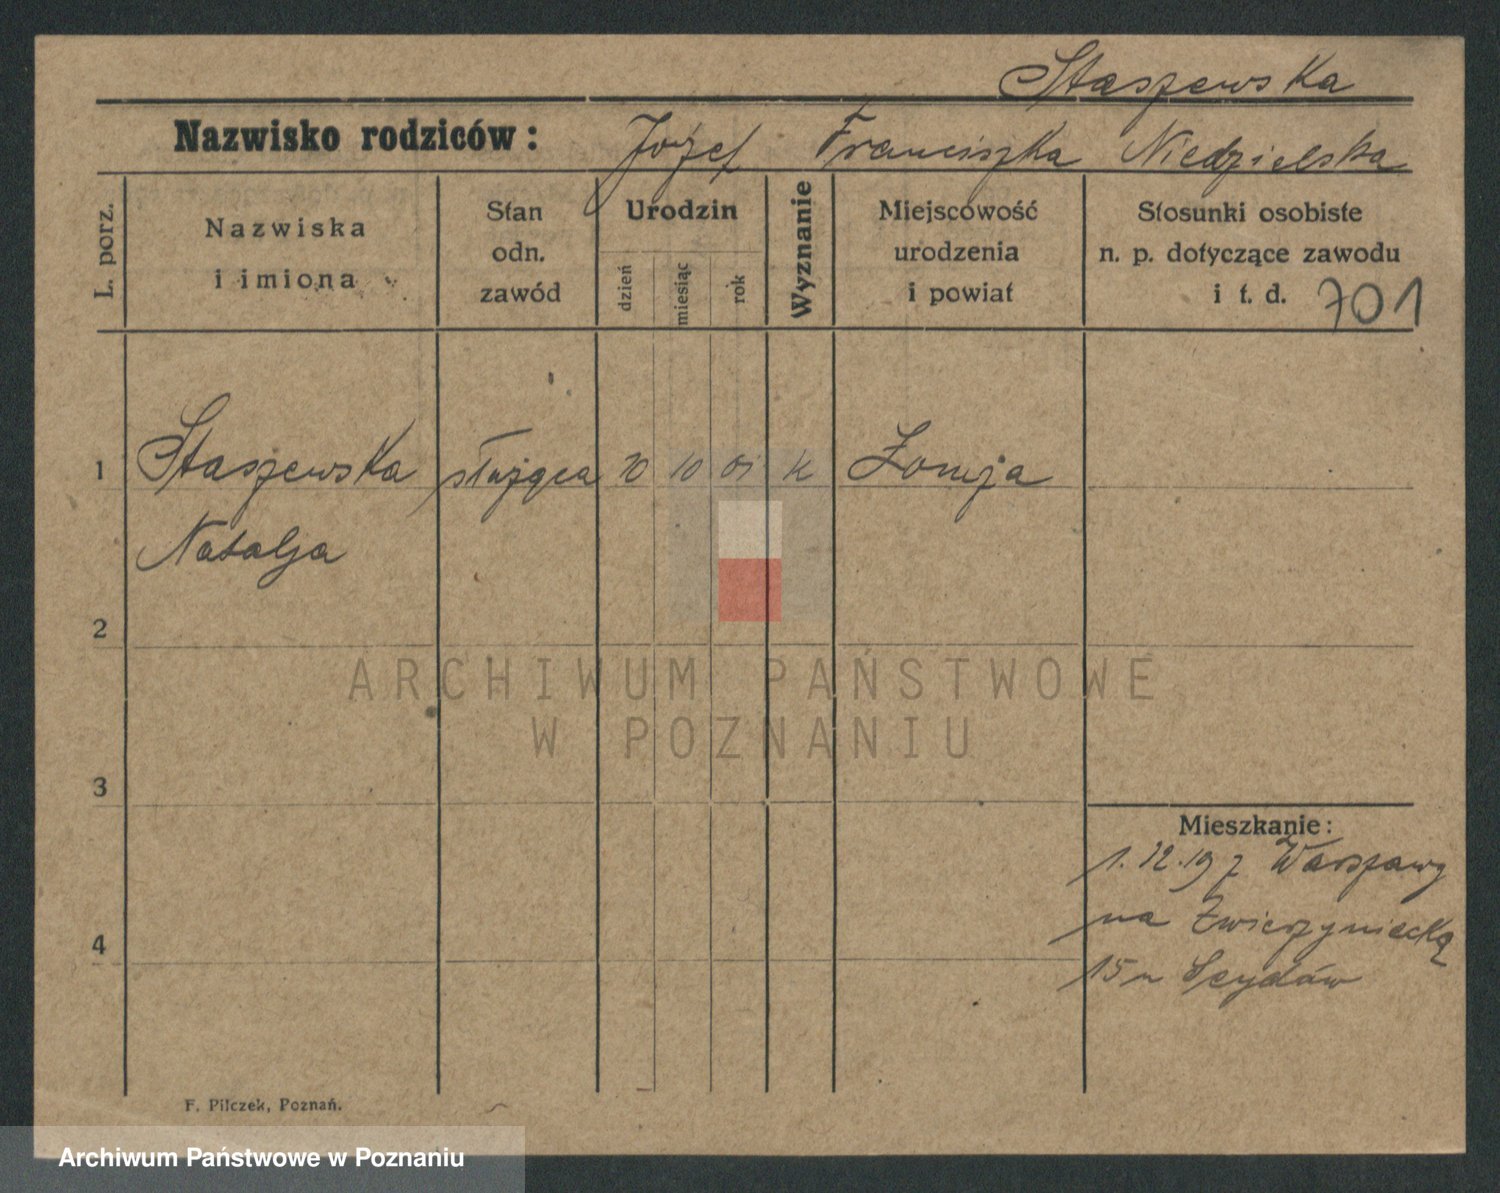 Staszewska
Nazwisko rodziców: Józef Franciszka Niedzielska
L. porz.
Nazwiska
i imiona
Stan
odn.
zawód
Urodzin
dzień
miesiąc
rok
Wyznanie
Miejscowość
urodzenia
i powiat
Stosunki osobiste
n. p. dotyczące zawodu
i t. d. 701
1 Staszewska służąca 10 01 k Łomża
Natalja
2
ARCHIWUM PAŃSTWOWE
W POZNANIU
3
Mieszkanie:
1.12.19 z Warszawy
na Zwierzyniecką
4
15
F. Pilczek, Poznań.
Archiwum Państwowe w Poznaniu